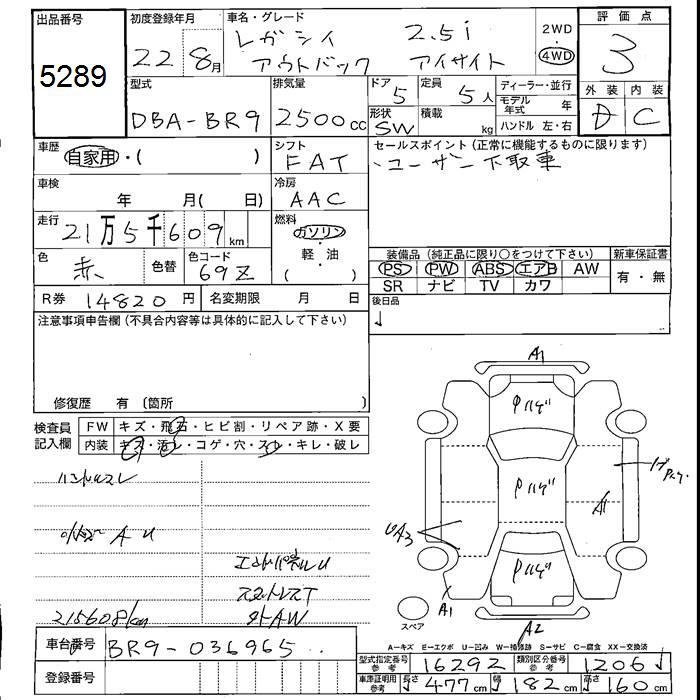 出品番号 初度登録年月 車名・グレード 2WD・4WD 評価点
5289 22年 8月 レガシィ 2.5i 3
アウトバック アイサイト
型式 排気量 ドア 定員 ディーラー・並行 外装 内装
DBA-BR9 2500cc 5 5人 モデル年式 年 D C
形状 積載 ハンドル 左・右
SW kg
車歴 自家用・( ) シフト セールスポイント(正常に機能するものに限ります)
FAT ユーザー下取車
車検 年 月( 日) 冷房
AAC
走行 21万5千609km 燃料 ガソリン・軽・油 ( )
装備品(純正品に限り○をつけて下さい) 新車保証書
色 赤 色替 色コード 69Z
PS PW ABS エアB AW 有・無
SR ナビ TV カワ
R券 14820円 名変期限 月 日 後日品
注意事項申告欄(不具合内容等は具体的に記入して下さい)
修復歴 有 (箇所 )
検査員記入欄 FW キズ・飛石・ヒビ割・リペア跡・X要
内装 キズ・汚レ・コゲ・穴・スレ・キレ・破レ
ハンドルスレ
A U
エンドパネルU
スタットレスT
215608km 外AW
A1
Pハゲ
Pハゲ
Pハゲ
A1
UA3
A1
A2
スペア
A−キズ E−エクボ U−凹み W−補修跡 S−サビ C−腐食 XX−交換済
車台番号 BR9-036965
型式指定番号参考 16292 類別区分番号参考 1206
登録番号
車庫証明用参考 長さ 477cm 幅 182cm 高さ 160cm